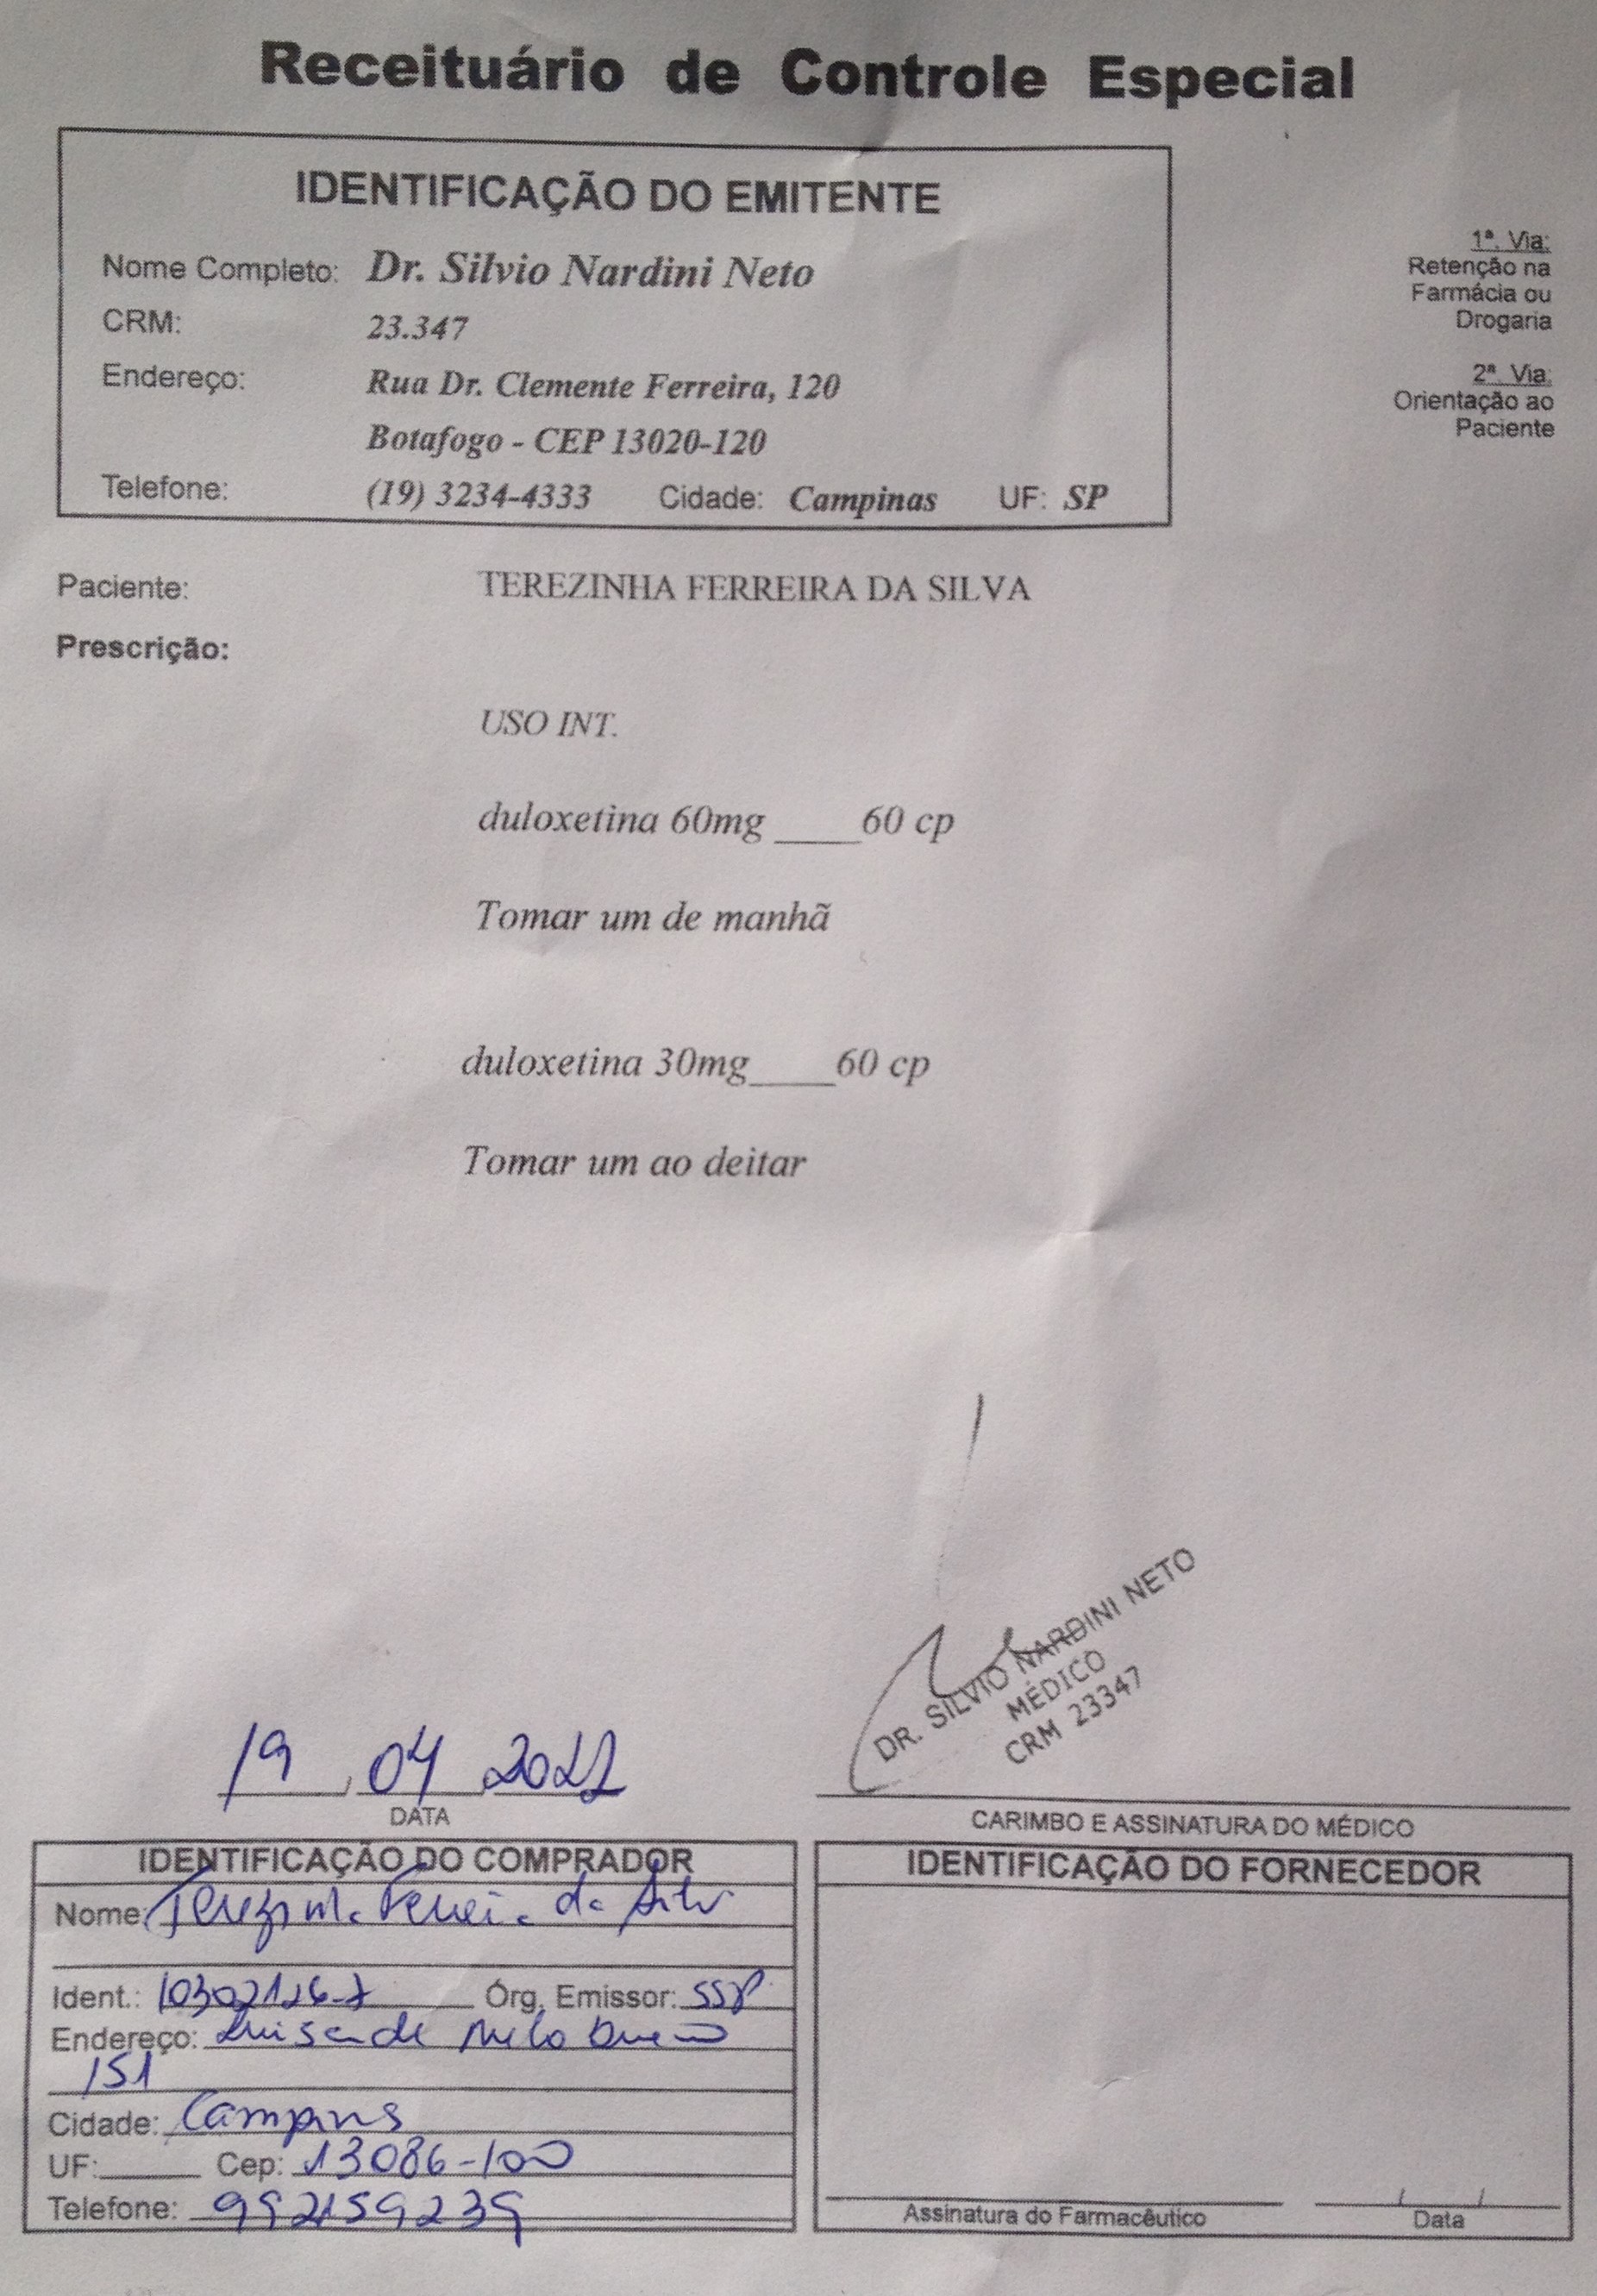 Receituário de Controle Especial
IDENTIFICAÇÃO DO EMITENTE
Nome Completo: Dr. Silvio Nardini Neto
CRM: 23.347
Endereço: Rua Dr. Clemente Ferreira, 120
Botafogo - CEP 13020-120
Telefone: (19) 3234-4333 Cidade: Campinas UF: SP
1ª. Via:
Retenção na
Farmácia ou
Drogaria
2ª. Via:
Orientação ao
Paciente
Paciente: TEREZINHA FERREIRA DA SILVA
Prescrição:
USO INT.
duloxetina 60mg ____60 cp
Tomar um de manhã
duloxetina 30mg____60 cp
Tomar um ao deitar
DR. SILVIO NARDINI NETO
MÉDICO
CRM 23347
19 04
DATA
CARIMBO E ASSINATURA DO MÉDICO
IDENTIFICAÇÃO DO COMPRADOR
Nome: Terezinha Ferreira da Silva
Ident.: Órg. Emissor: SSP
Endereço:
151
Cidade: Campinas
UF:____ Cep: 13086-100
Telefone: 992159239
IDENTIFICAÇÃO DO FORNECEDOR
Assinatura do Farmacêutico
/ /
Data